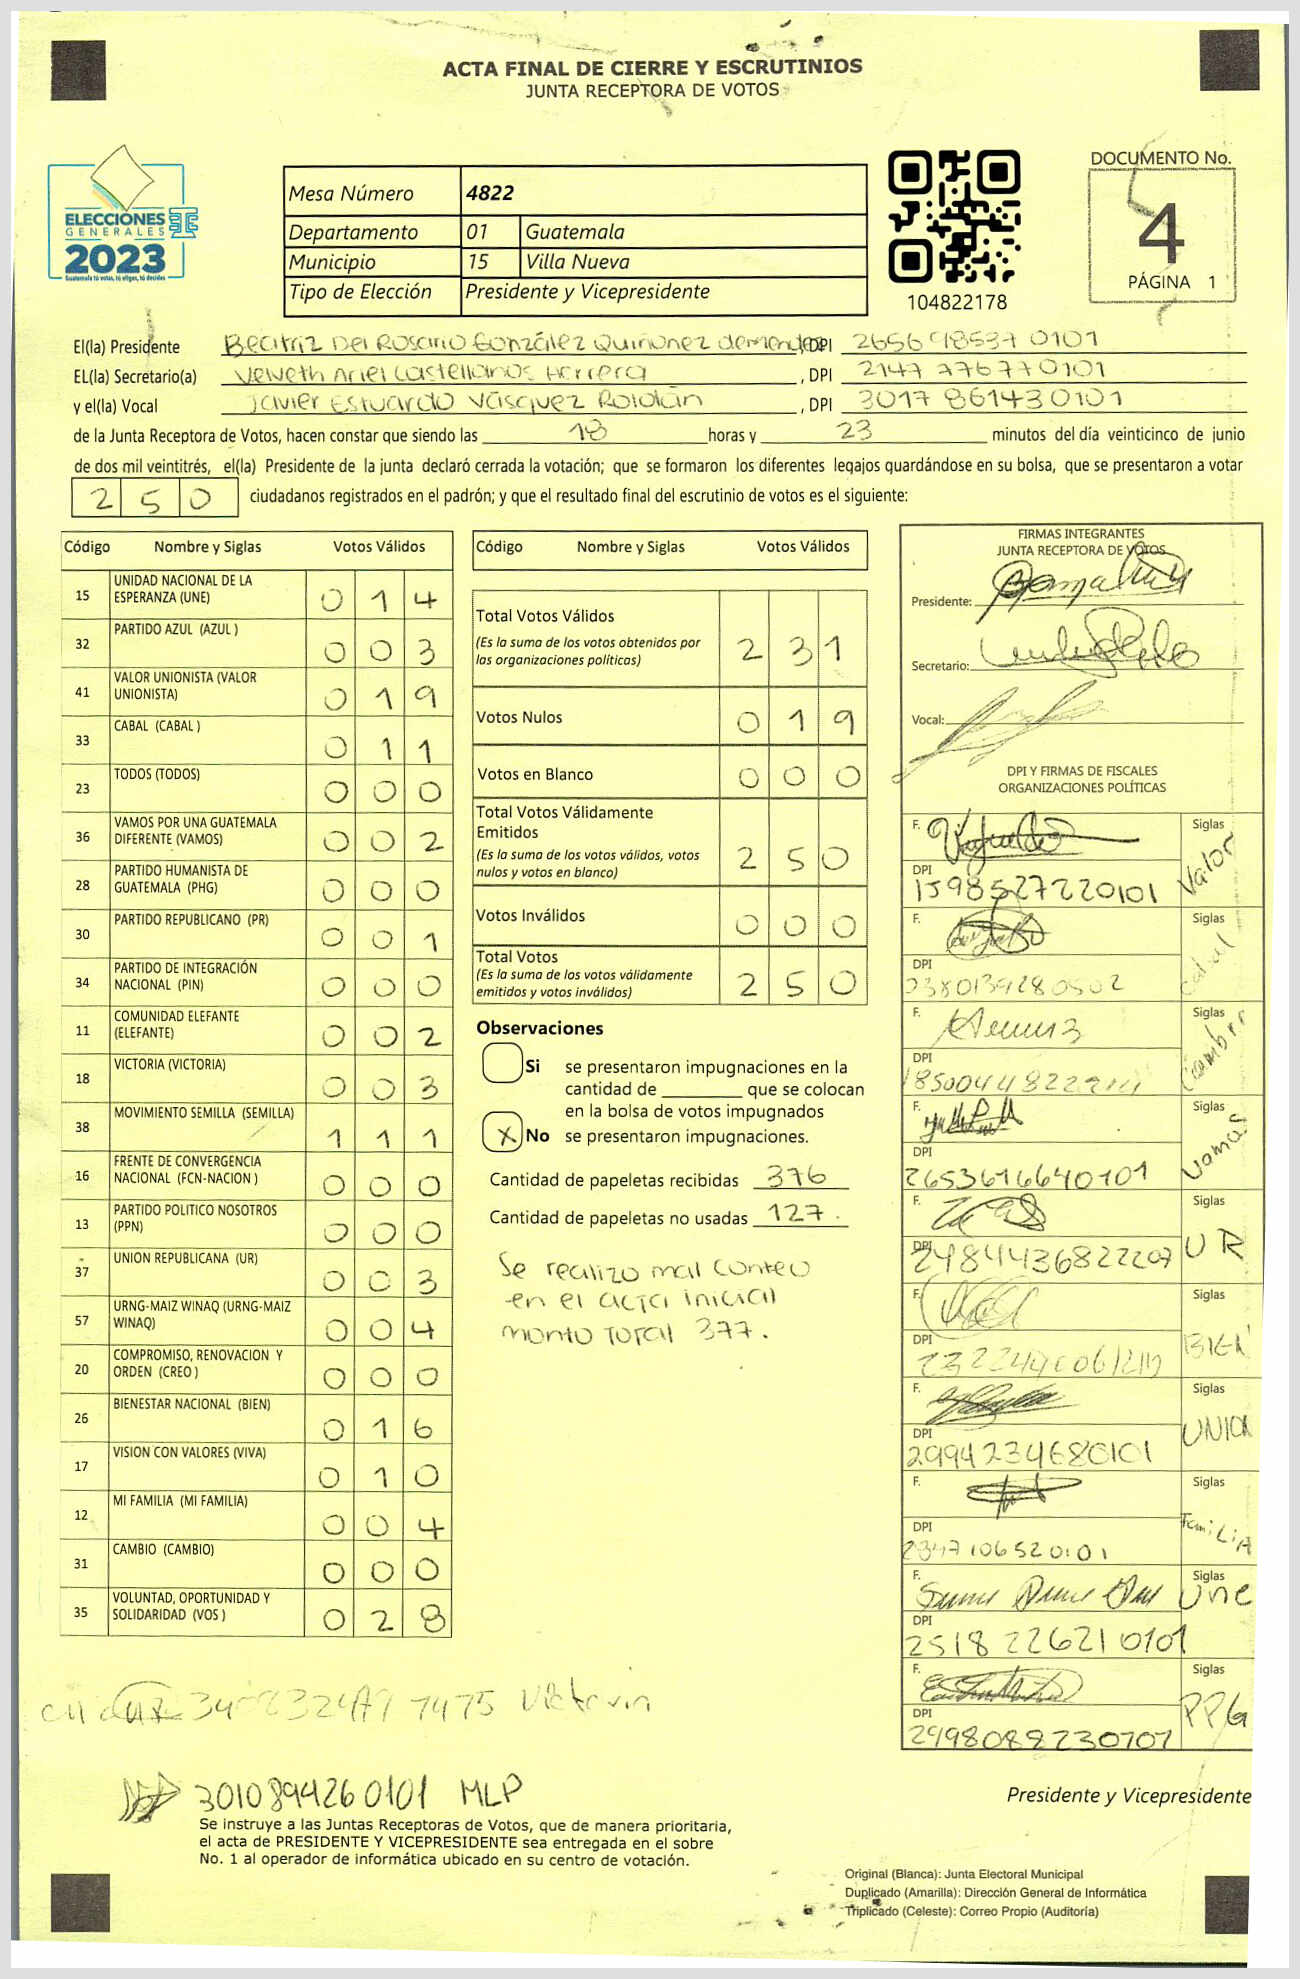 ACTA FINAL DE CIERRE Y ESCRUTINIOS
JUNTA RECEPTORA DE VOTOS
ELECCIONES
GENERALES
2023
Guatemala tú votas, tú eliges, tú decides
Mesa Número 4822
Departamento 01 Guatemala
Municipio 15 Villa Nueva
Tipo de Elección Presidente y Vicepresidente
104822178
DOCUMENTO No.
4
PÁGINA 1
El(la) Presidente Beatriz Del Rosario González Quiñonez , DPI 2656 98537 0101
EL(la) Secretario(a) Velveth Ariel Castellanos Herrera , DPI 2147 77677 0101
y el(la) Vocal Javier Estuardo Vásquez Roldán , DPI 3017 86143 0101
de la Junta Receptora de Votos, hacen constar que siendo las 18 horas y 23 minutos del día veinticinco de junio
de dos mil veintitrés, el(la) Presidente de la junta declaró cerrada la votación; que se formaron los diferentes legajos guardándose en su bolsa, que se presentaron a votar
250 ciudadanos registrados en el padrón; y que el resultado final del escrutinio de votos es el siguiente:
Código Nombre y Siglas Votos Válidos
15 UNIDAD NACIONAL DE LA ESPERANZA (UNE) 014
32 PARTIDO AZUL (AZUL ) 003
41 VALOR UNIONISTA (VALOR UNIONISTA) 019
33 CABAL (CABAL ) 011
23 TODOS (TODOS) 000
36 VAMOS POR UNA GUATEMALA DIFERENTE (VAMOS) 002
28 PARTIDO HUMANISTA DE GUATEMALA (PHG) 000
30 PARTIDO REPUBLICANO (PR) 001
34 PARTIDO DE INTEGRACIÓN NACIONAL (PIN) 000
11 COMUNIDAD ELEFANTE (ELEFANTE) 002
18 VICTORIA (VICTORIA) 003
38 MOVIMIENTO SEMILLA (SEMILLA) 111
16 FRENTE DE CONVERGENCIA NACIONAL (FCN-NACION ) 000
13 PARTIDO POLITICO NOSOTROS (PPN) 000
37 UNION REPUBLICANA (UR) 003
57 URNG-MAIZ WINAQ (URNG-MAIZ WINAQ) 004
20 COMPROMISO, RENOVACION Y ORDEN (CREO ) 000
26 BIENESTAR NACIONAL (BIEN) 016
17 VISION CON VALORES (VIVA) 010
12 MI FAMILIA (MI FAMILIA) 004
31 CAMBIO (CAMBIO) 000
35 VOLUNTAD, OPORTUNIDAD Y SOLIDARIDAD (VOS ) 028
Código Nombre y Siglas Votos Válidos
Total Votos Válidos 231
(Es la suma de los votos obtenidos por
las organizaciones políticas)
Votos Nulos 019
Votos en Blanco 000
Total Votos Válidamente
Emitidos 250
(Es la suma de los votos válidos, votos
nulos y votos en blanco)
Votos Inválidos 000
Total Votos 250
(Es la suma de los votos válidamente
emitidos y votos inválidos)
Observaciones
Si se presentaron impugnaciones en la
cantidad de ________ que se colocan
en la bolsa de votos impugnados
X No se presentaron impugnaciones.
Cantidad de papeletas recibidas 376
Cantidad de papeletas no usadas 127.
Se realizo mal conteo
en el acta inicial
monto total 377.
FIRMAS INTEGRANTES
JUNTA RECEPTORA DE VOTOS
Presidente:
Secretario:
Vocal:
DPI Y FIRMAS DE FISCALES
ORGANIZACIONES POLÍTICAS
F. Siglas Valor
DPI 1598527220101
F. Siglas
DPI
F. Siglas
DPI
F. Siglas Vamos
DPI 2653616640101
F. Siglas UR
DPI 2484436822207
F. Siglas BIEN
DPI
F. Siglas
DPI 2994234680101
F. Siglas Familia
DPI 2347106520101
F. Siglas Une
DPI 2518 22621 0101
F. Siglas PPG
DPI 2498088230101
3010894260101 MLP
Presidente y Vicepresidente
Se instruye a las Juntas Receptoras de Votos, que de manera prioritaria,
el acta de PRESIDENTE Y VICEPRESIDENTE sea entregada en el sobre
No. 1 al operador de informática ubicado en su centro de votación.
Original (Blanca): Junta Electoral Municipal
Duplicado (Amarilla): Dirección General de Informática
Triplicado (Celeste): Correo Propio (Auditoría)